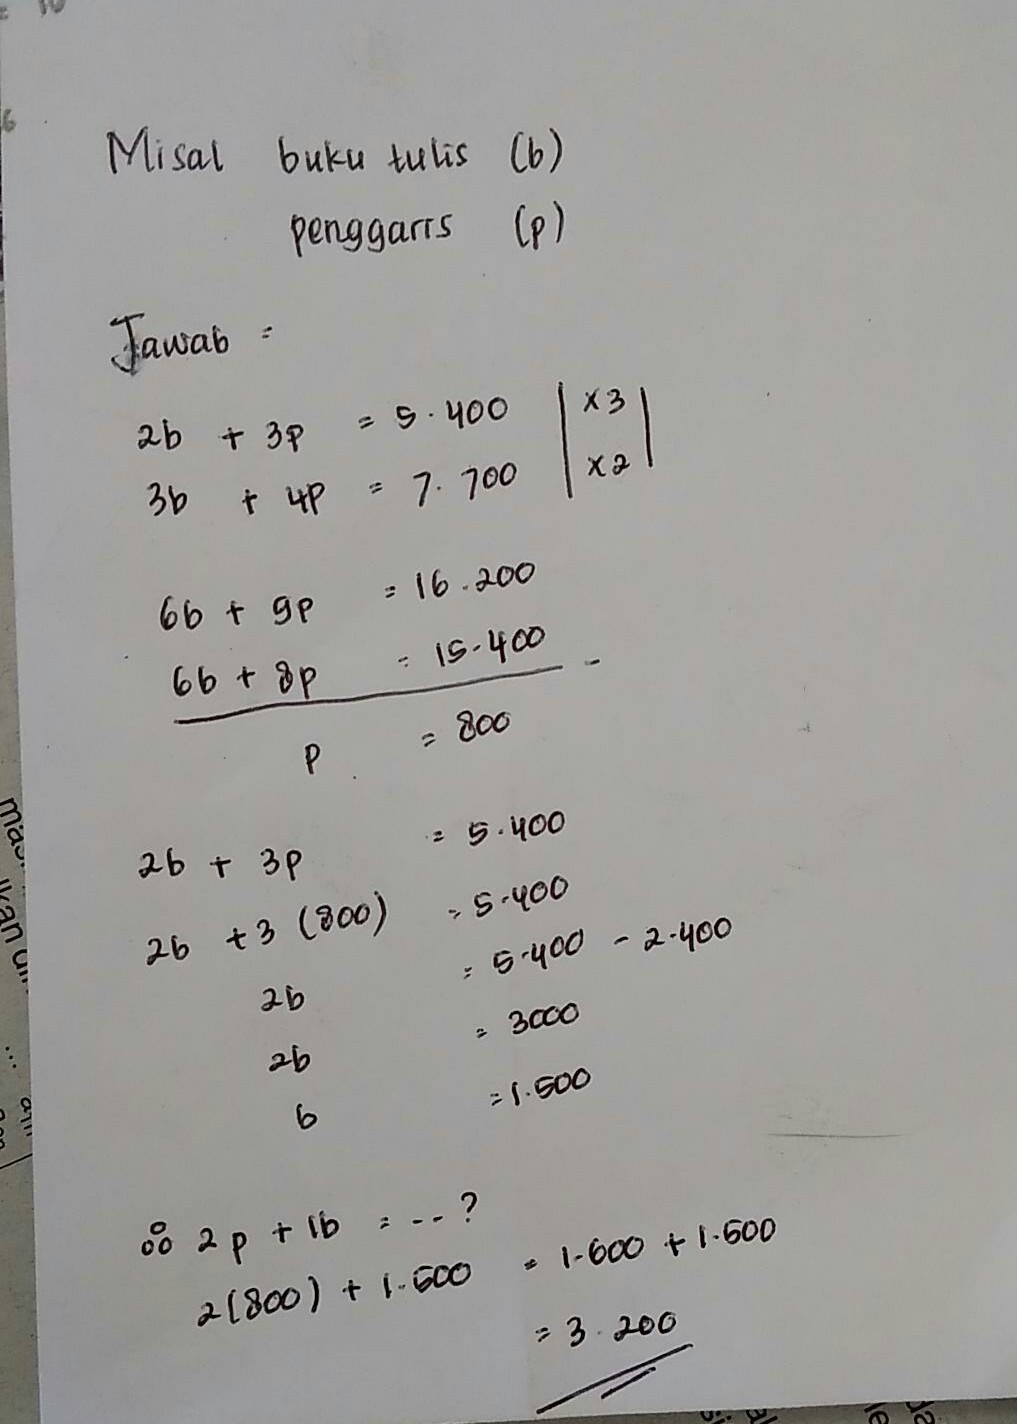 Misal buku tulis (b)
penggaris (p)
Jawab =
2b + 3p = 5.400 | x3 |
3b + 4p = 7.700 | x2 |
6b + 9p = 16.200
6b + 8p = 15.400 -
p = 800
2b + 3p = 5.400
2b + 3 (800) = 5.400
2b = 5.400 - 2.400
2b = 3000
b = 1.500
∴ 2p + 1b = --- ?
2(800) + 1.500 = 1.600 + 1.500
= 3.200